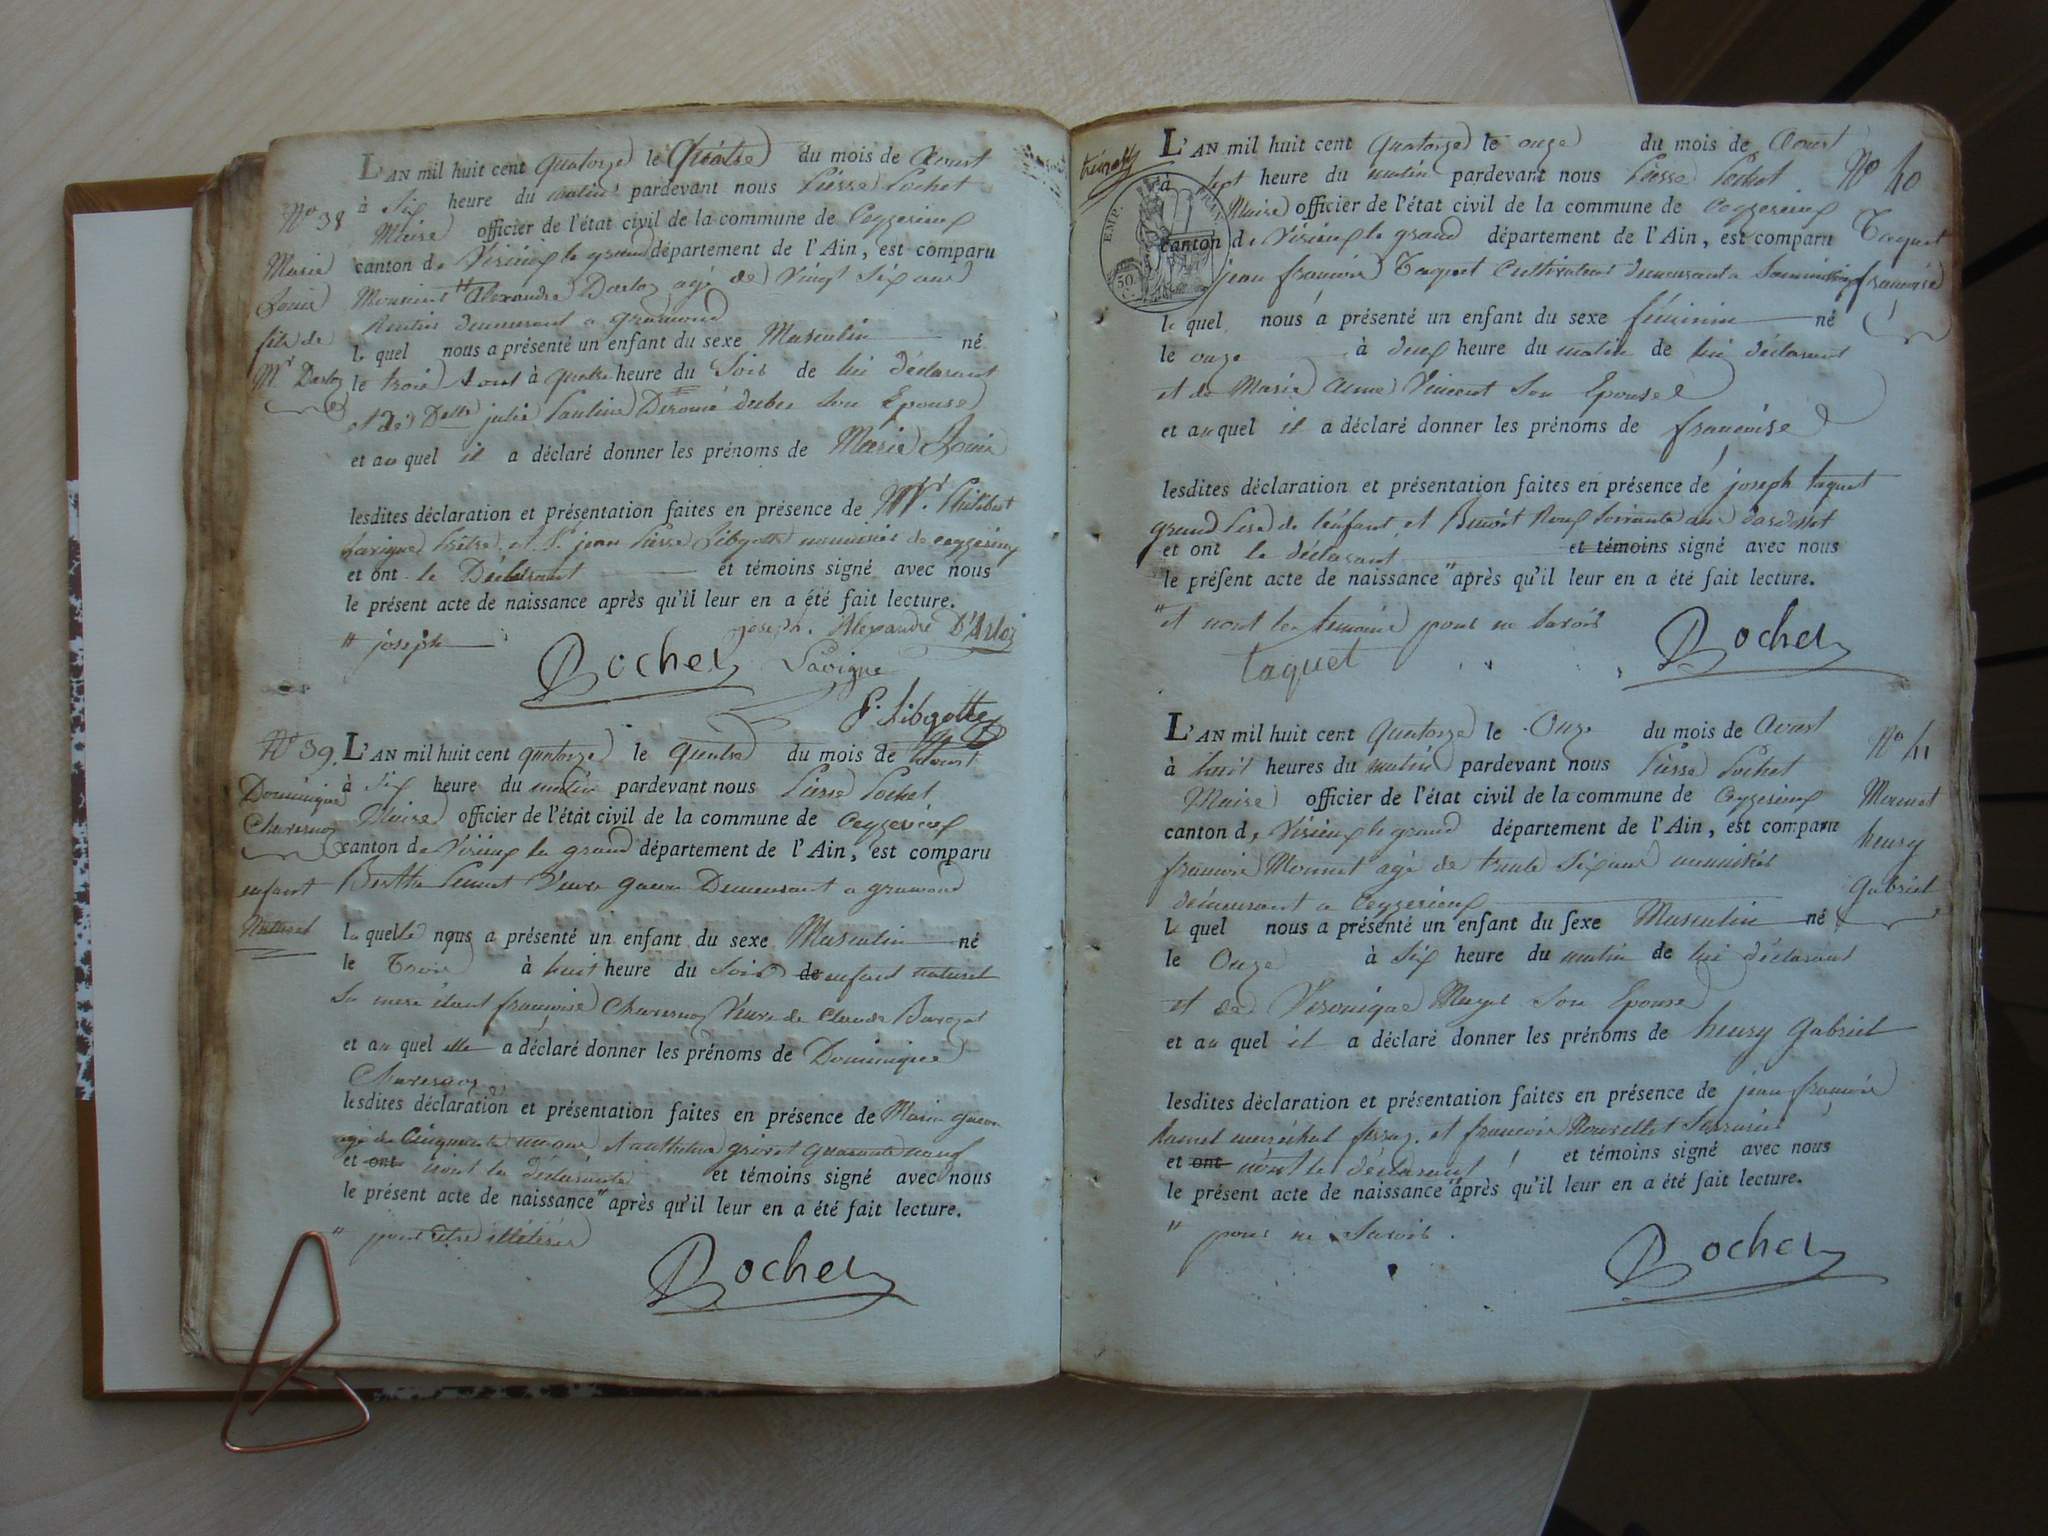 L'AN mil huit cent quatorze le Quatre du mois de Aoust
à Six heure du matin pardevant nous Pierre Rochet
N° 38
Maire officier de l'état civil de la commune de Ceyzerieux
Marie
canton de Virieux le grand département de l'Ain, est comparu
Louis
Monsieur " Alexandre Darloz agé de Vingt Six ans
Rentier demeurant a gramond
fils de
le quel nous a présenté un enfant du sexe Masculin né
Mr Darloz
le trois aout à quatre heure du Soir de lui déclarant
et de Delle julie Pauline son Epouse
et au quel il a déclaré donner les prénoms de Marie Louis
lesdites déclaration et présentation faites en présence de Mr. Philibert
Lavigne Prêtre et Sr jean Pierre Sibgotte de ceyzerieux
et ont le Déclarant et témoins signé avec nous
le présent acte de naissance après qu'il leur en a été fait lecture.
" joseph
joseph. Alexandre D'Arloz
Rochet Lavigne
P. Sibgotte
N° 39.
L'AN mil huit cent quatorze le quatre du mois de Aoust
Dominique
à Six heure du matin pardevant nous Pierre Rochet
Charesnoz
Maire officier de l'état civil de la commune de Ceyzerieux
canton de Virieux le grand département de l'Ain, est comparu
enfant
Berthe Veuve Demeurant a gramond
Naturel
la quelle nous a présenté un enfant du sexe Masculin né
le Trois à huit heure du Soir de enfant naturel
Sa mere étant françoise Charesnoz Veuve de Claude
et au quel elle a déclaré donner les prénoms de Dominique
Charesnoz
lesdites déclaration et présentation faites en présence de
agé de Cinquante un ans, et anthelme grivet quarante neuf
et ont n'ont la déclarante et témoins signé avec nous
le présent acte de naissance " après qu'il leur en a été fait lecture.
" pour être illétéré
Rochet
EMP. FRAN.
50 C.
L'AN mil huit cent quatorze le onze du mois de Aoust
à Sept heure du matin pardevant nous Pierre Rochet
N° 40
Maire officier de l'état civil de la commune de Ceyzerieux
canton de Virieux le grand département de l'Ain, est comparu
Taquet
jean françois Taquet Cultivateur demeurant a
françoise
le quel nous a présenté un enfant du sexe féminin né
le onze à deux heure du matin de lui déclarant
et de Marie Anne Vincent Son Epouse
et au quel il a déclaré donner les prénoms de françoise
lesdites déclaration et présentation faites en présence de joseph taquet
grand Pere de l'enfant et Benoit Roux soixante ans
et ont le déclarant et témoins signé avec nous
le présent acte de naissance " après qu'il leur en a été fait lecture.
" et nont les temoins pour ne savoir
taquet Rochet
L'AN mil huit cent quatorze le Onze du mois de Aoust
N° 41
à huit heures du matin pardevant nous Pierre Rochet
Maire officier de l'état civil de la commune de Ceyzerieux
Monnet
canton de Virieux le grand département de l'Ain, est comparu
henry
françois Monnet agé de trente Six ans
Gabriel
demeurant a Ceyzerieux
le quel nous a présenté un enfant du sexe Masculin né
le Onze à Six heure du matin de lui déclarant
et de Veronique Son Epouse
et au quel il a déclaré donner les prénoms de henry Gabriel
lesdites déclaration et présentation faites en présence de jean françois
maréchal et françois
et ont n'ont le déclarant et témoins signé avec nous
le présent acte de naissance " après qu'il leur en a été fait lecture.
" pour ne Savoir.
Rochet